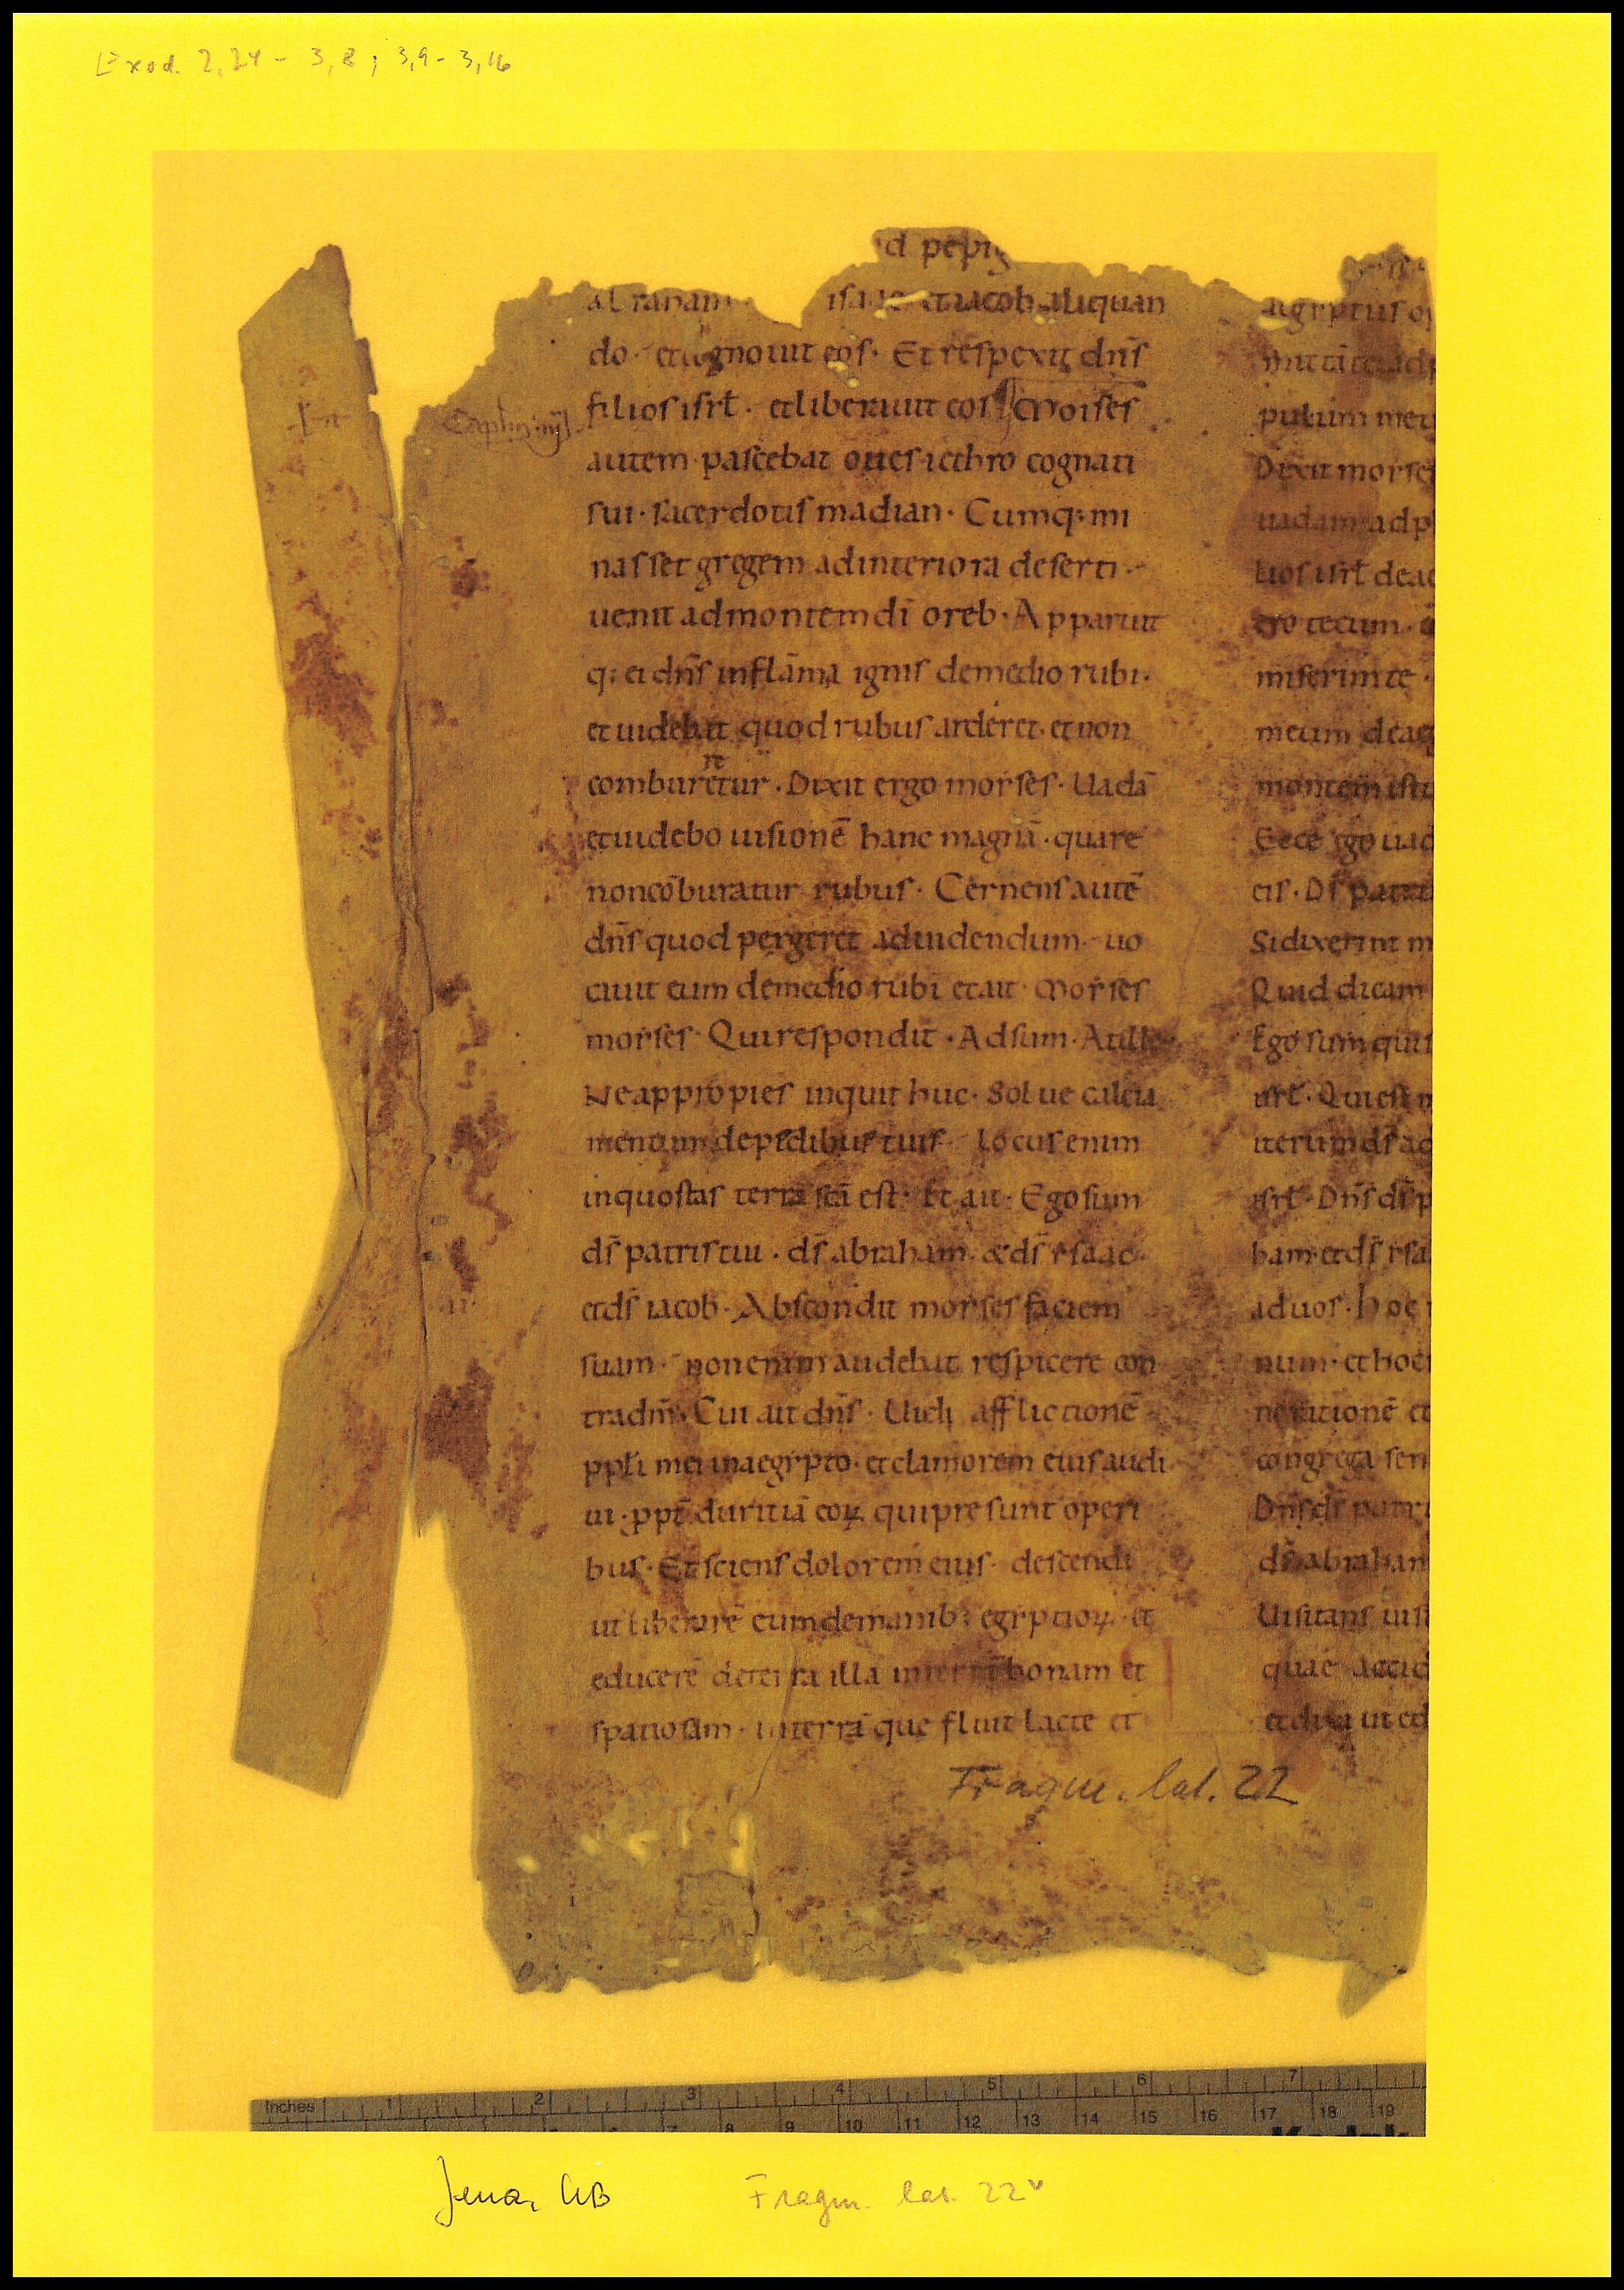 Exod. 2,24 - 3,8 ; 3,9 - 3,16
d pepig
isaac et iacob aliquan
do · et agnouit eos · Et respexit dn̄s
filios isrł · et liberauit eos Moises
autem pascebat oues iethro cognati
sui · sacerdotis madian · Cumq; mi
nasset gregem ad interiora deserti ·
uenit ad montem dī oreb · Apparuit
q; ei dn̄s in flāma ignis de medio rubi ·
et uidebat quod rubus arderet · et non
combureretur · Dixit ergo moyses · Uadā
et uidebo uisionē hanc magnā · quare
non cōburatur rubus · Cernens autē
dn̄s quod pergeret ad uidendum · uo
cauit eum de medio rubi et ait · Moyses
moyses · Qui respondit · Adsum · At ille
Ne appropies inquit huc · Solue calcia
mentum de pedibus tuis · locus enim
in quo stas terra scā est · Et ait · Ego sum
ds̄ patris tui · ds̄ abraham · & ds̄ ysaac ·
et ds̄ iacob · Abscondit moyses faciem
suam · non enim audebat respicere con
tra dm̄ · Cui ait dn̄s · Uidi afflictionē
ppłi mei in aegypto · et clamorem eius audi
ui · ppt̄ duritiā eoꝝ qui presunt operi
bus · Et sciens dolorem eius · descendi
ut liberarē eum de manib; egyptioꝝ · et
educerē de terra illa in terrā bonam et
spatiosam · in terrā que fluit lacte et
aegyptus o
mittā te ad
pulum meu
Dixit moyse
uadam ad p
lios isrł de ae
ero tecum ·
miserim te ·
meum de aeg
montem istu
Ecce ego uad
eis · Ds̄ patru
Si dixerint m
Quid dicam
Ego sum qui s
isrł · Qui est m
iterum ds̄ ad
isrł · Dn̄s ds̄ p
ham · et ds̄ ysa
ad uos · hoc
num · et hoc
neratione et
congrega sen
Dn̄s ds̄ patr
ds̄ abraham
Uisitans uisi
quae accid
et dixi ut ed
Fragm. lat. 22
Inches 1 2 3 4 5 6 7
7 8 9 10 11 12 13 14 15 16 17 18 19
Jena, UB Fragm. lat. 22v